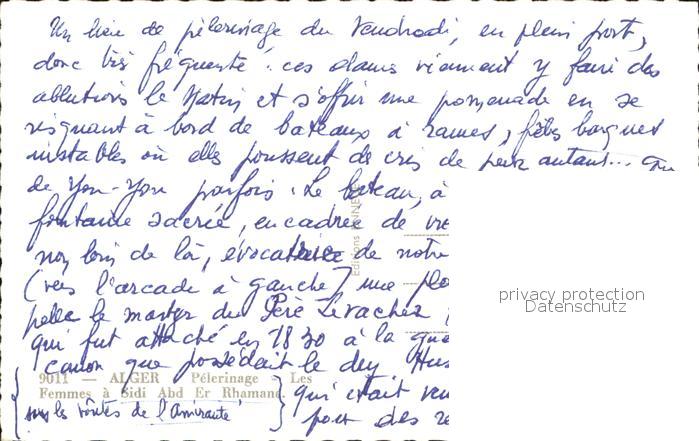 Un lieu de pèlerinage du Vendredi, en plein port,
donc très fréquenté : ces dames viennent y faire des
ablutions le Matin et s'offrir une promenade en se
risquant à bord de bateaux à rames, ptes barques
instables où elles poussent de cris de peur autant... que
de You-You parfois. Le bateau, à
fontaine sacrée, encadrée de
non loin de là, évocatrice de notre
(vers l'arcade à gauche) une
pelle le martyr du Père Levacher
qui fut attaché en 1830 à la
canon que possédait le dey
9011 — ALGER Pélerinage Les
Femmes à Sidi Abd Er Rhamane
qui était
sur les voûtes de l'Amirauté
port des
Editions
privacy protection
Datenschutz